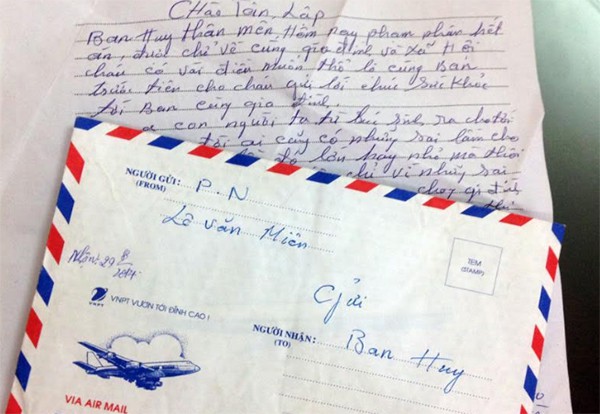 Chào Tân Lập
Ban Huy thân mến, Hôm nay phạm nhân hết
án, được chở về cùng gia đình và xã Hội
cháu có vài điều muốn thổ lộ cùng Ban
trước tiên cho cháu gửi lời chúc sức khỏe
tới Ban cùng gia đình.
con người ta từ lúc sinh ra cho tới
tới ai cũng có những sai lầm cho
lớn hay nhỏ mà thôi
chỉ vì những sai
gì
NGƯỜI GỬI: P.N
(FROM)
Lê văn Miên
TEM
(STAMP)
Nhận: 29 8
2014
VNPT VNPT VƯƠN TỚI ĐỈNH CAO !
Gửi
NGƯỜI NHẬN: Ban Huy
(TO)
VIA AIR MAIL